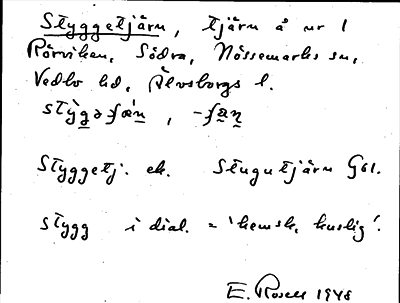 Styggetjärn, tjärn å nr 1
Rörviken, Södra, Nössemarks sn,
Vedbo hd, Älvsborgs l.
Styggetj. ek. Stugutjärn G61.
stygg i dial. = 'hemsk, kuslig'.
E. Rosell 1948